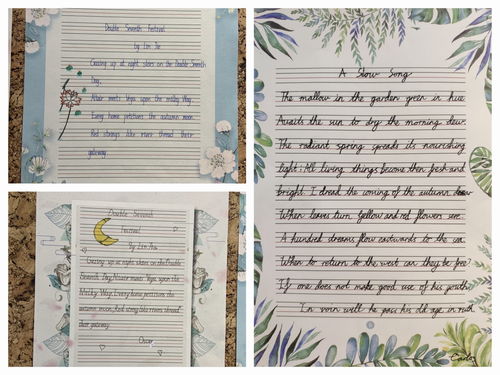 Double Seventh Festival
by Lin Jie
Gazing up at night stars on the Double Seventh
Day,
Altair meets Vega upon the milky Way.
Every home petitions the autumn moon.
Red strings like river thread their
gateway.
Double Seventh
Festival
By Lin Jie
Gazing up at night stars on the Double
Seventh Day, meets Vega upon the
Milky Way, Every home petitions the
autumn moon, Red string like rivers thread
their gateway.
Oscar
A Slow Song
The mallow in the garden green in hue
Awaits the sun to dry the morning dew.
The radiant spring spreads its nourishing
light; All living things become then fresh and
bright. I dread the coming of the autumn
When leaves turn yellow and red flowers sere.
A hundred streams flow eastwards to the sea.
When to return to the west can they be free?
If one does not make good use of his youth
In vain will he pass his old age in ruth